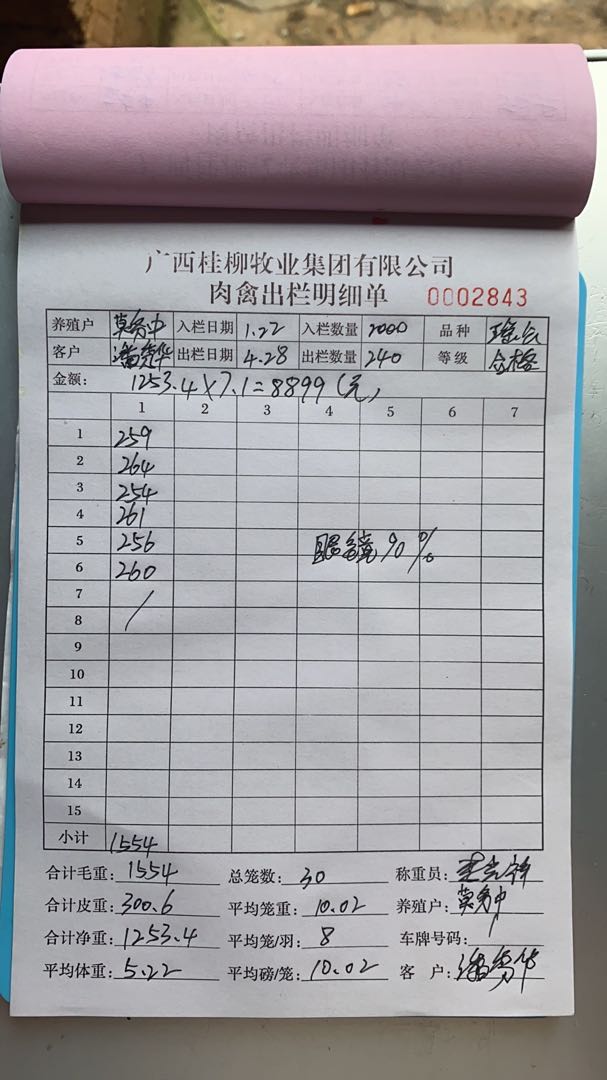 广西桂柳牧业集团有限公司
肉禽出栏明细单 0002843
养殖户 入栏日期 1.22 入栏数量 2000 品种
客户 出栏日期 4.28 出栏数量 240 等级 合格
金额: 1253.4×7.1=8899(元)
1 2 3 4 5 6 7
1 259
2 264
3 254
4 261
5 256 眼镜90%
6 260
7
8 /
9
10
11
12
13
14
15
小计 1554
合计毛重: 1554 总笼数: 30 称重员:
合计皮重: 300.6 平均笼重: 10.02 养殖户:
合计净重: 1253.4 平均笼/羽: 8 车牌号码: /
平均体重: 5.22 平均磅/笼: 10.02 客户: